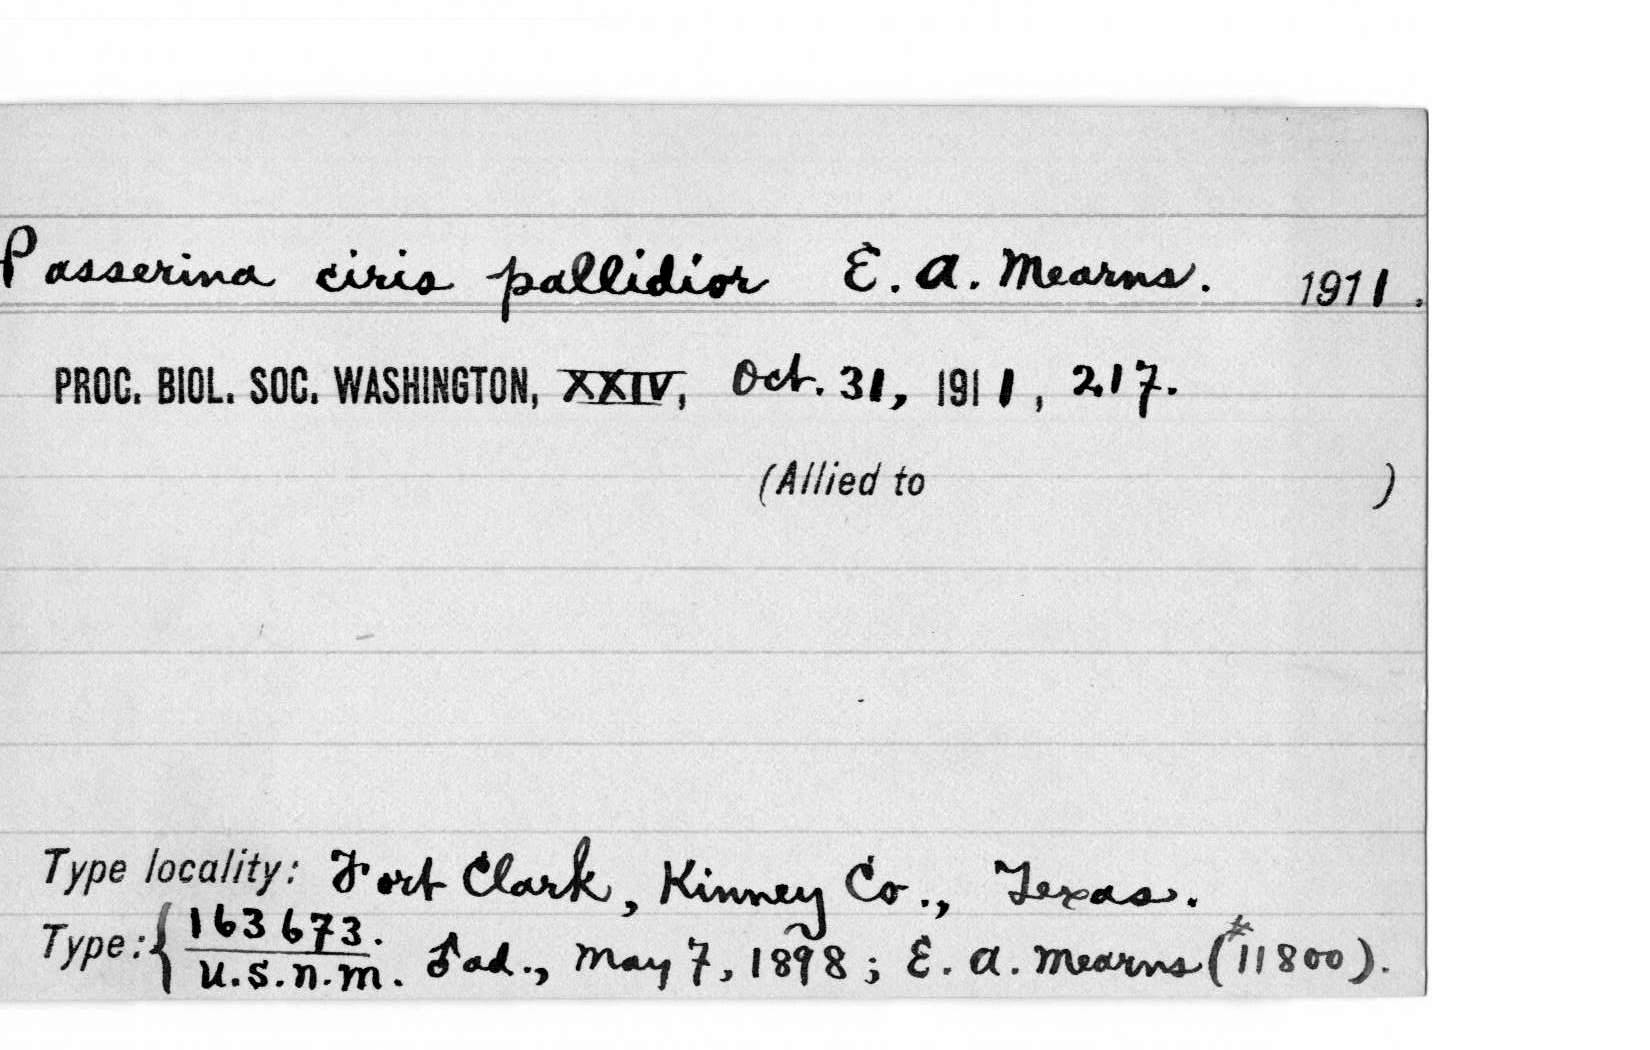 Passerina ciris pallidior E. A. Mearns. 1911.
PROC. BIOL. SOC. WASHINGTON, XXIV, Oct. 31, 1911, 217.
(Allied to )
Type locality: Fort Clark, Kinney Co., Texas.
Type: { 163673.
U.S.N.M. ♂ ad., May 7, 1898; E. A. Mearns (#11800).